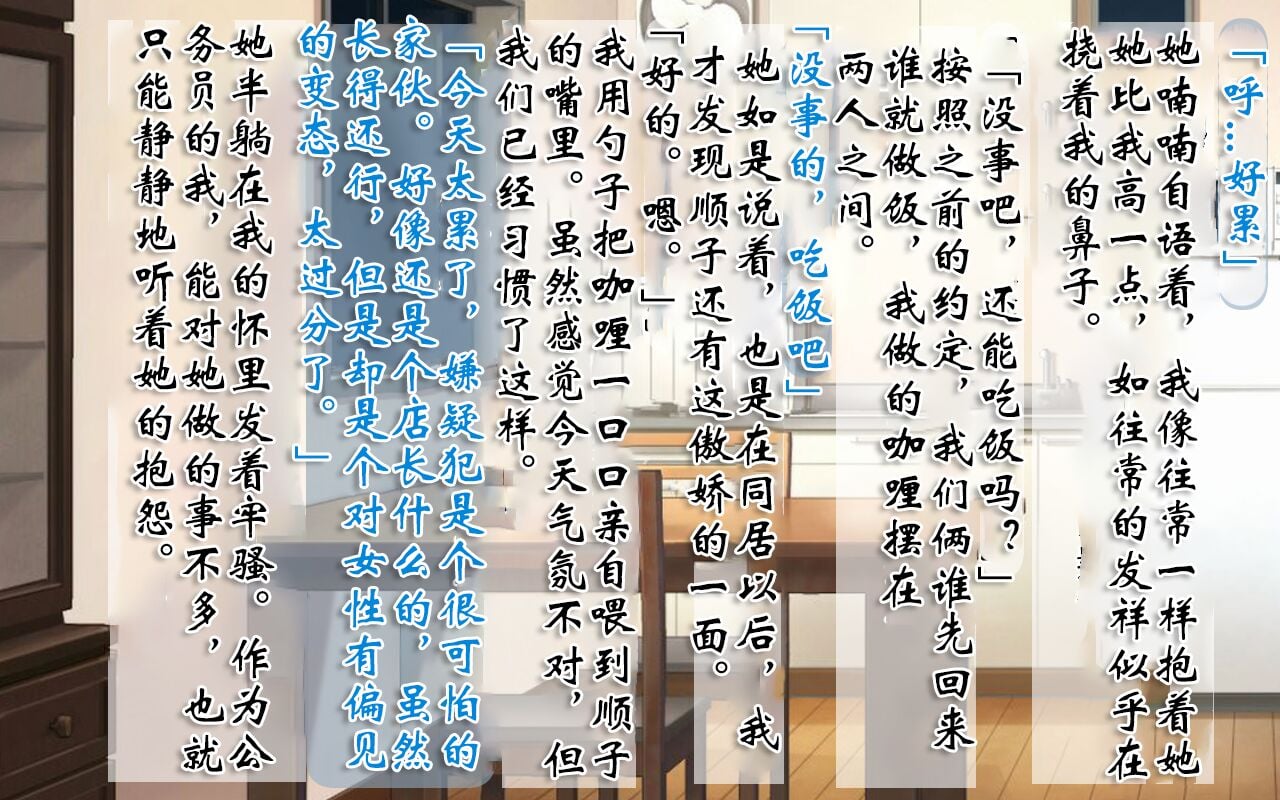 「呼…好累」
她喃喃自语着，我像往常一样抱着她
她比我高一点，如往常的发祥似乎在
挠着我的鼻子。
「没事吧，还能吃饭吗？」
按照之前的约定，我们俩谁先回来
谁就做饭，我做的咖喱摆在
两人之间。
「没事的，吃饭吧」
她如是说着，也是在同居以后，我
才发现顺子还有这傲娇的一面。
「好的。嗯。」
我用勺子把咖喱一口口亲自喂到顺子
的嘴里。虽然感觉今天气氛不对，但
我们已经习惯了这样。
「今天太累了，嫌疑犯是个很可怕的
家伙。好像还是个店长什么的，虽然
长得还行，但是却是个对女性有偏见
的变态，太过分了。」
她半躺在我的怀里发着牢骚。作为公
务员的我，能对她做的事不多，也就
只能静静地听着她的抱怨。